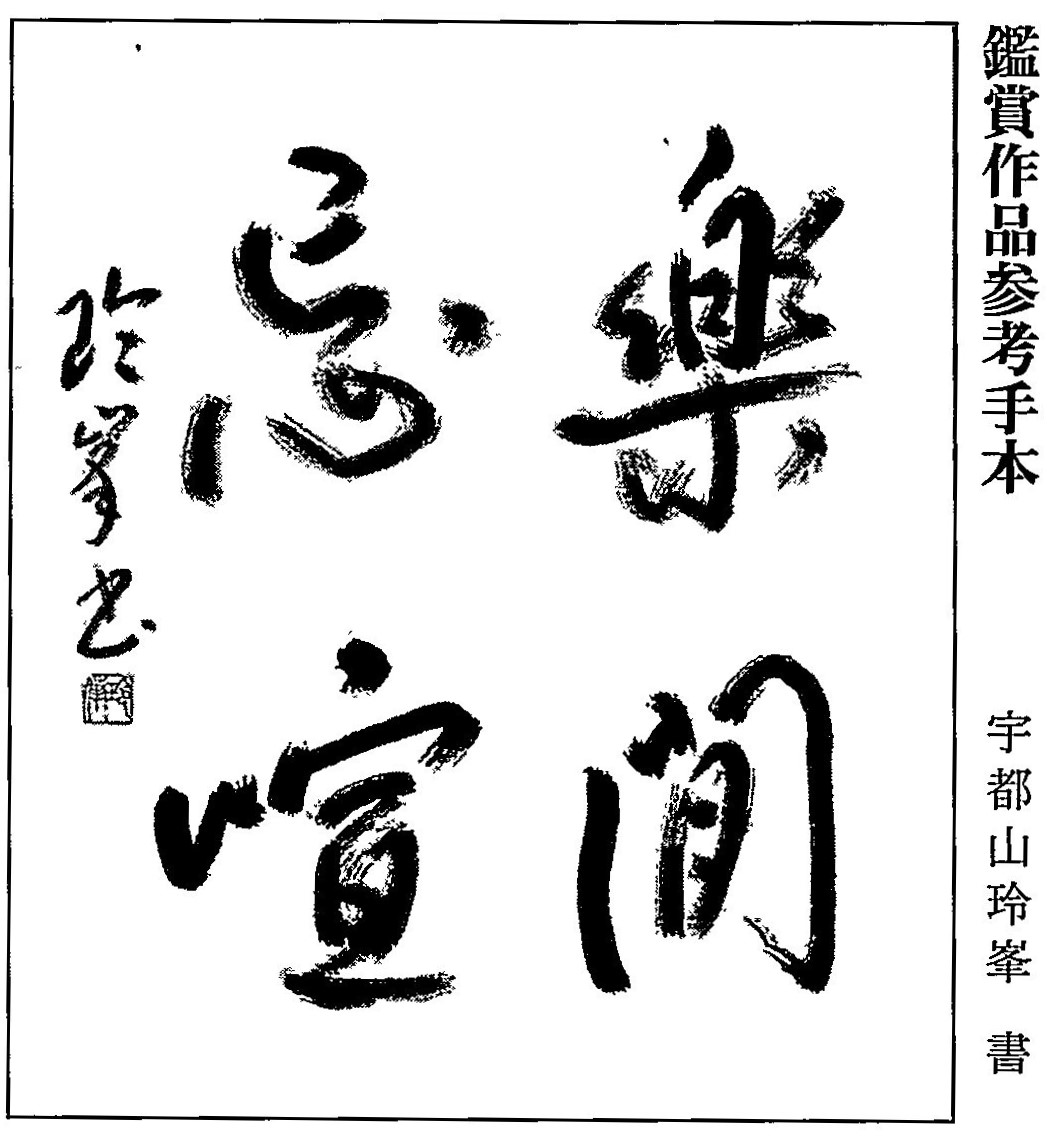 鑑賞作品参考手本
宇都山玲峯 書
樂閒
忘喧
玲峯書